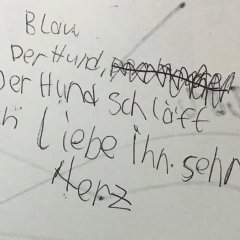 Blau
Der Hund,
Der Hund schläft
ich liebe ihn. sehr
Herz